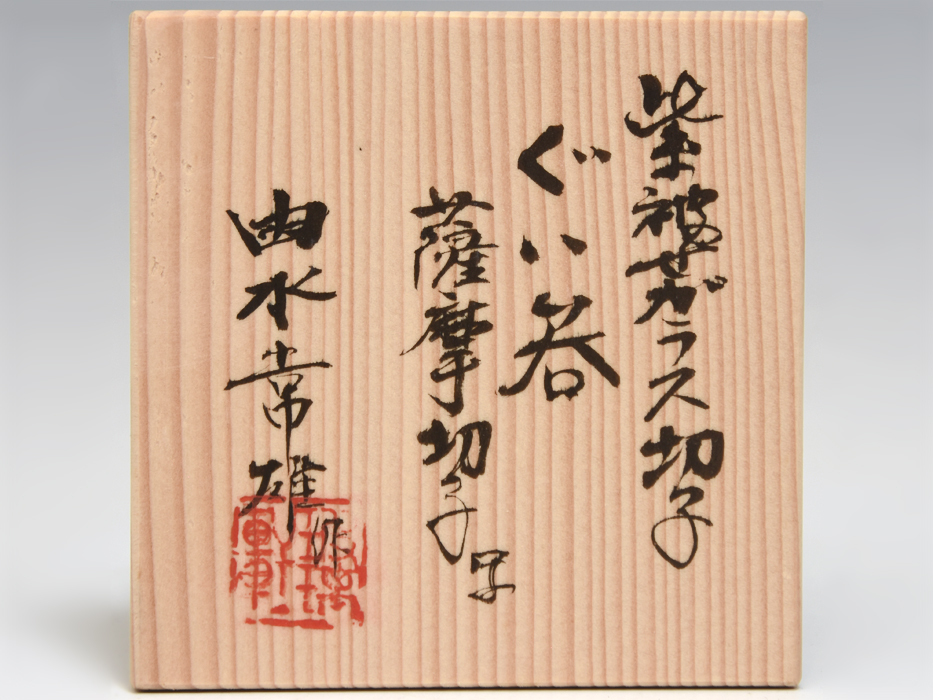 紫被せガラス切子
ぐい呑
薩摩切子写
由水常雄作